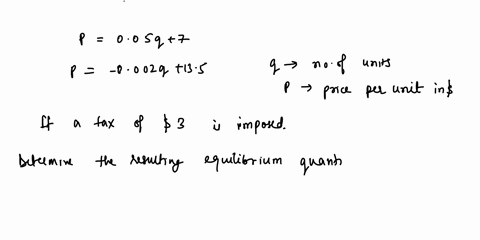 P = 0.05q+7
P = -0.002q +13.5
q → no. of units
P → price per unit in $
If a tax of $3 is imposed.
Determine the resulting equilibrium quanti